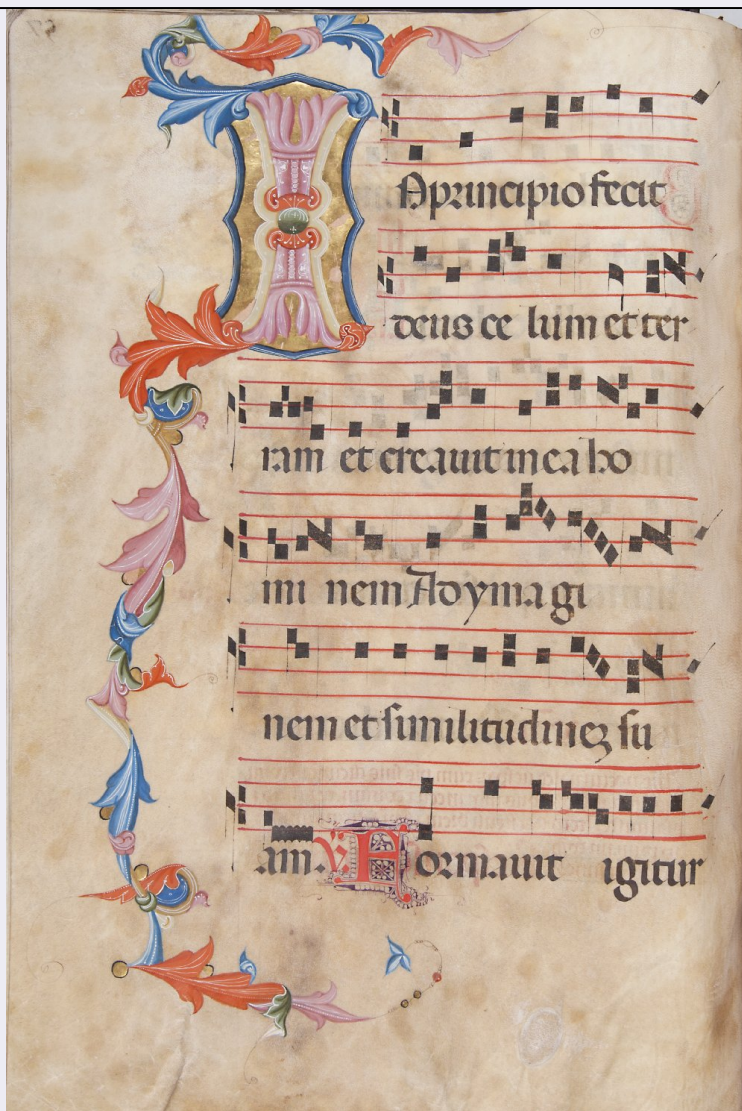 IN principio fecit
deus ce lum et ter
ram et creauit in ea ho
mi nem Ad ymagi
nem et similitudinez su
am. V Formauit igitur